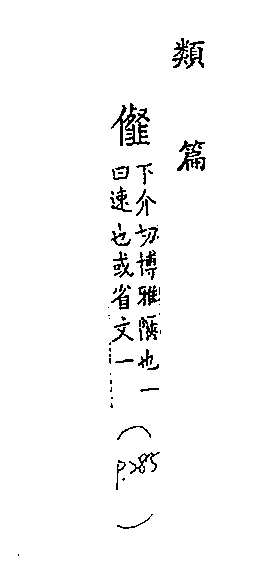 類篇
下介切博雅陿也一
曰速也或省文一
(p.285)